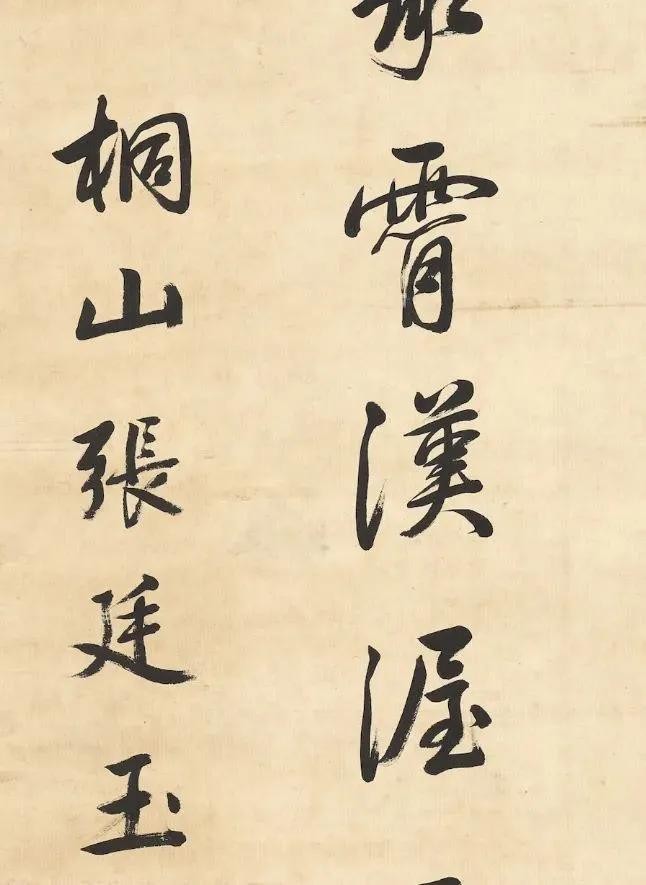 霄漢渥
桐山張廷玉